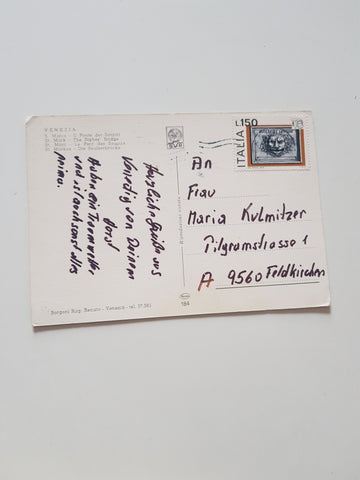 VENEZIA
S. Marco - Il Ponte dei Sospiri
St. Mark - The Sighes' Bridge
St. Marc - Le Pont des Soupirs
St. Markus - Die Seufzerbrücke
Herzliche Grüße aus
Venedig von Deinem
Horst
Haben ein Traumwetter,
und ist auch sonst alles
prima.
L.150
ITALIA
An
Frau
Maria Kulmitzer
Pilgramstrasse 1
A 9560 Feldkirchen
Riproduzione vietata
Borgoni Rag. Renato - Venezia - tel. 37.561
184